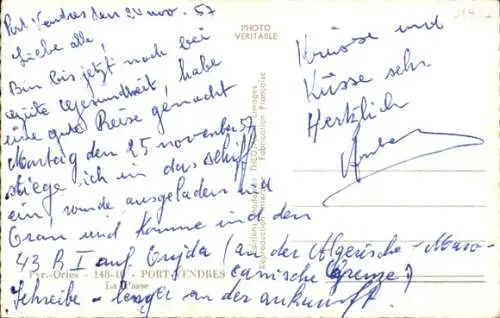 Port Vendres den 24 nov. 57
Liebe alle!
Bin bis jetzt noch bei
gute gesundheit, habe
eine gute Reise gemacht
Montag den 25 november 57
stiege ich in das schiff
ein, wurde ausgeladen in
Oran und komme in den
43 R I auf Oujda (an der Algerische-Maro-
canische Grenze)
Schreibe länger an der ankunft.
Grüsse und
Küsse sehr
Hertzlich
PHOTO
VERITABLE
Fabrication Française
Pyr.-Ories - 148-10 - PORT-VENDRES
La Passe